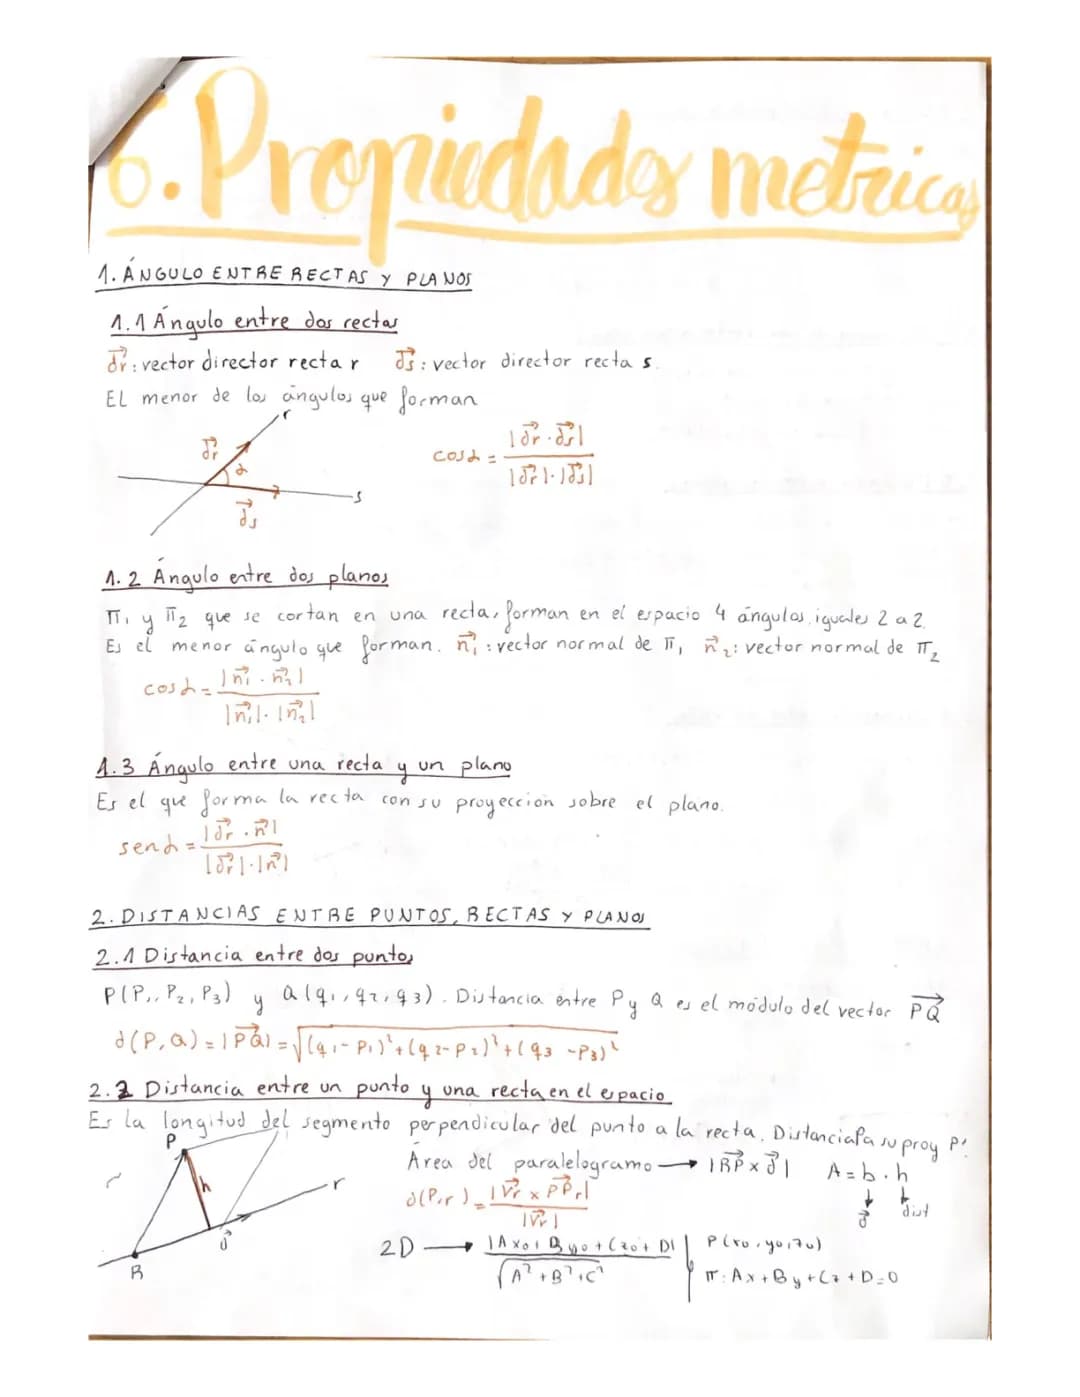 6. Propiedades metricas
1. ÁNGULO ENTRE RECTAS Y PLANOS
1.1 Ángulo entre dos rectas
d⃗r: vector director recta r d⃗s: vector director recta s.
EL menor de los ángulos que forman
r
d⃗r
α
s
d⃗s
cosα = |d⃗r · d⃗s| / |d⃗r| · |d⃗s|
1.2 Ángulo entre dos planos
π₁ y π₂ que se cortan en una recta, forman en el espacio 4 ángulos, iguales 2 a 2.
Es el menor ángulo que forman. n⃗₁: vector normal de π₁ n⃗₂: vector normal de π₂
cosα = |n⃗₁ · n⃗₂| / |n⃗₁| · |n⃗₂|
1.3 Ángulo entre una recta y un plano
Es el que forma la recta con su proyección sobre el plano.
senα = |d⃗r · n⃗| / |d⃗r| · |n⃗|
2. DISTANCIAS ENTRE PUNTOS, RECTAS Y PLANOS
2.1 Distancia entre dos puntos
P(P₁, P₂, P₃) y Q(q₁, q₂, q₃). Distancia entre P y Q es el módulo del vector PQ⃗
d(P,Q) = |PQ⃗| = √(q₁-P₁)²+(q₂-P₂)²+(q₃-P₃)²
2.2 Distancia entre un punto y una recta en el espacio
Es la longitud del segmento perpendicular del punto a la recta. Distancia P a su proy P'
P
h
r
d⃗
R
Área del paralelogramo → |RP⃗ × d⃗| A = b · h
d⃗ dist
d(P,r) = |v⃗r × PPr⃗| / |v⃗r|
2D → |Ax₀ + By₀ + Cz₀ + D| / √A²+B²+C² P(x₀, y₀, z₀)
π: Ax + By + Cz + D = 0